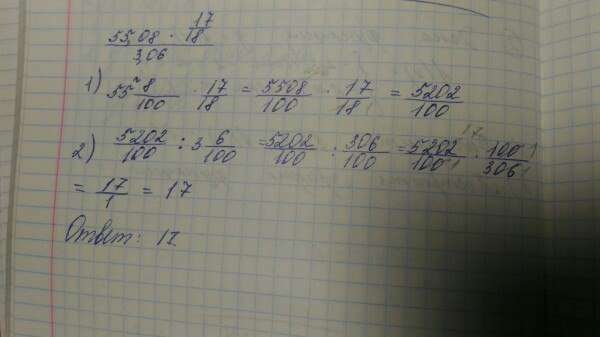 55,08 · 17/18
3,06
1) 55 8/100 · 17/18 = 5508/100 · 17/18 = 5202/100
2) 5202/100 : 3 6/100 = 5202/100 : 306/100 = 5202/100 · 100/306
= 17/1 = 17
Ответ: 17.